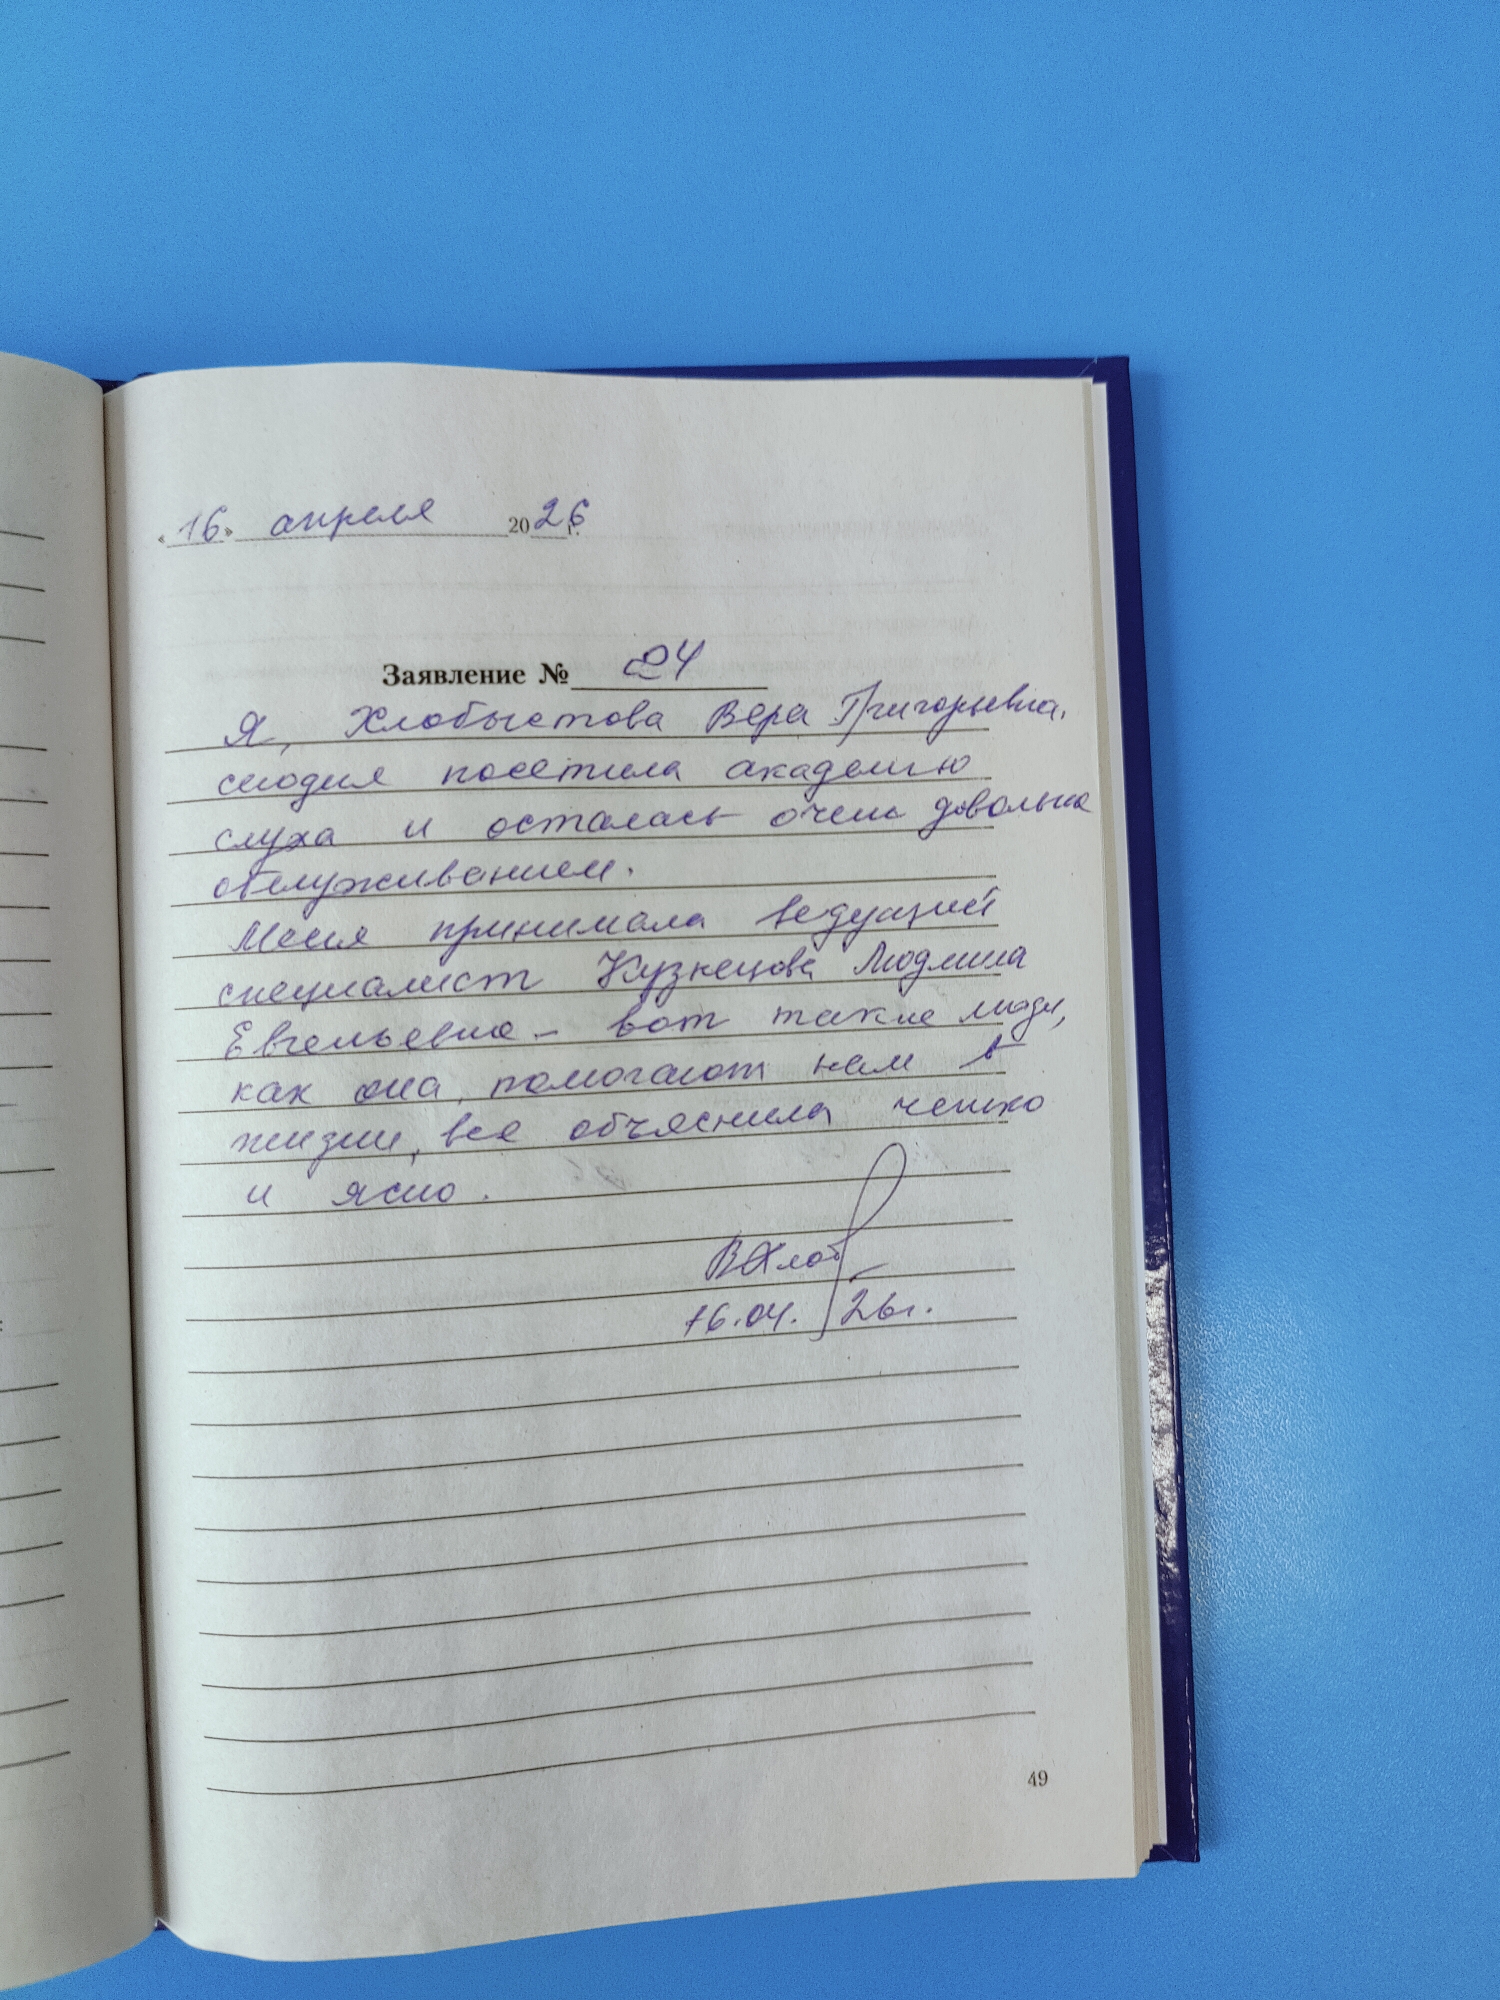 « 16 » апреля 2026 г.
Заявление № 24
Я, Хлобыстова Вера Григорьевна,
сегодня посетила академию
слуха и осталась очень довольна
обслуживанием.
Меня принимала ведущий
специалист Кузнецова Людмила
Евгеньевна – вот такие люди,
как она, помогают нам в
жизни, все объяснила четко
и ясно.
ВХлоб
16.04. 26г.
49